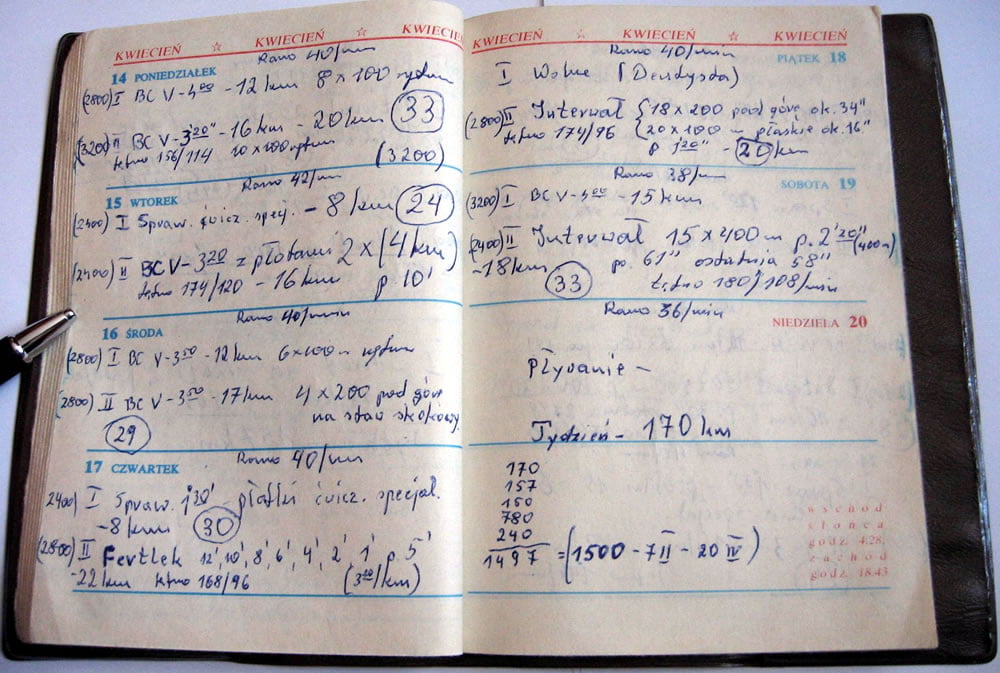 KWIECIEŃ ☆ KWIECIEŃ ☆ KWIECIEŃ
Rano 40/min
14 PONIEDZIAŁEK
(2800) I BC V-4⁰⁰ -12km 8x100 rytm
(3200) II BC V-3'20'' -16km - 20km (33)
tętno 156/114 20x100 rytm (3200)
Rano 42/min
15 WTOREK
(2400) I Spraw. ćwicz. specj. - 8km (24)
(2400) II BC V-3'20 z płotami 2x(4km)
tętno 174/120 - 16km p. 10'
Rano 40/min
16 ŚRODA
(2800) I BC V-3⁵⁰ -12km 6x100m rytm
(2800) II BC V-3⁵⁰ -17km 4x200 pod górę
na staw skokowy.
(29)
Rano 40/min
17 CZWARTEK
2400) I Spraw. 1'30' - płotki ćwicz. specjal.
-8km (30)
(2800) II Fertlek 12', 10', 8', 6', 4', 2', 1' p. 5'
-22km tętno 168/96 (3²⁰/km)
KWIECIEŃ ☆ KWIECIEŃ ☆ KWIECIEŃ
Rano 40/min
PIĄTEK 18
I Wolne (Dentysta)
(2800) II Interwał {18x200 pod górę ok. 34''
tętno 174/96 {20x100 m płaskie ok. 16''
p 1'20'' - (20)km
Rano 38/min
SOBOTA 19
(3200) I BC V-4⁰⁰ - 15km
(2400) II Interwał 15x400m p. 2'20'' (400m)
-18km po. 61'' ostatnia 58''
(33) tętno 180/108/min
Rano 36/min
NIEDZIELA 20
Pływanie -
Tydzień - 170km
170
157
150
780
240
1497 = (1500 - 7 II - 20 IV)
wschód
słońca
godz. 4.28,
zachód
godz. 18.43